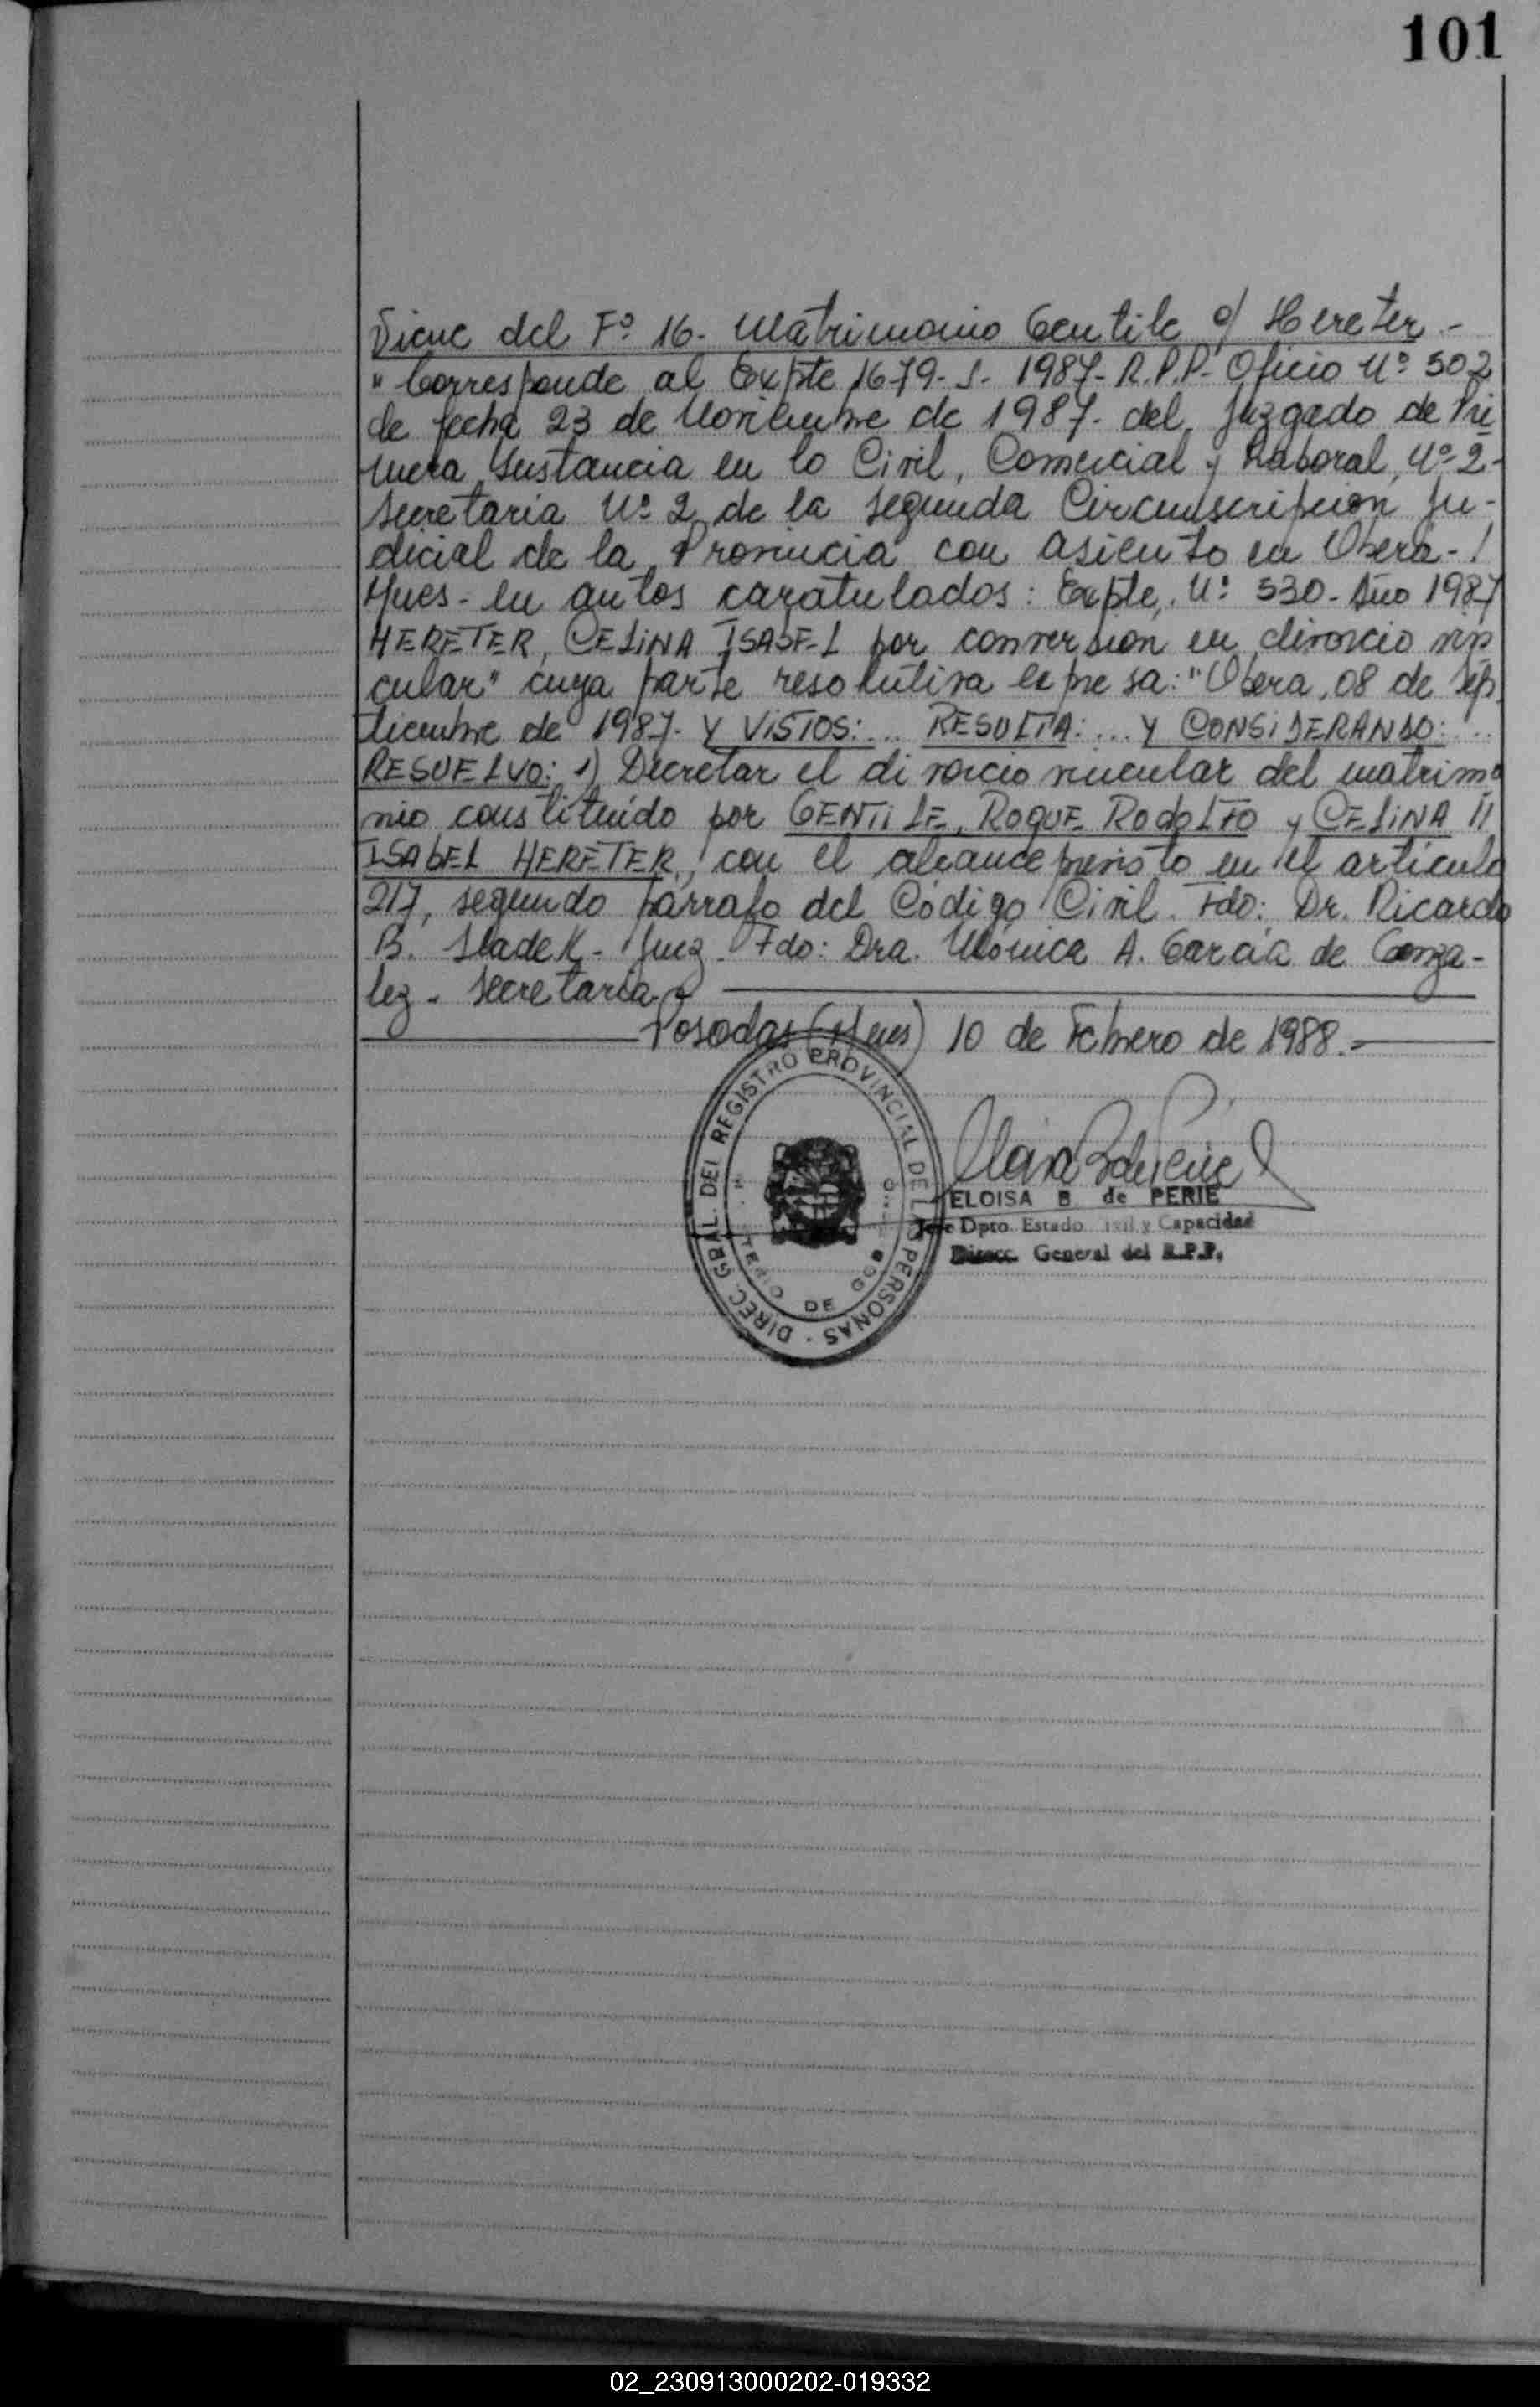 101
Viene del Fº 16. Matrimonio Gentile c/ Hereter.-
"Corresponde al Expte 1679-S-1987-R.P.P.- Oficio Nº 502
de fecha 23 de Noviembre de 1987- del Juzgado de Pri
mera Instancia en lo Civil, Comercial y Laboral, Nº 2-
Secretaria Nº 2 de la Segunda Circunscripcion Ju-
dicial de la Provincia con asiento en Obera-
Mnes- en autos caratulados: Expte, Nº 530- Año 1987
HERETER, CELINA ISABEL por conversion en divorcio vin
cular" cuya parte resolutiva expresa: "Obera, 08 de Sep
tiembre de 1987- Y VISTOS:... RESULTA:... Y CONSIDERANDO:...
RESUELVO: 1) Decretar el divorcio vincular del matrimo
nio constituído por GENTILE, ROQUE RODOLFO y CELINA //
ISABEL HERETER, con el alcance previsto en el artículo
217, segundo párrafo del Código Civil. Fdo: Dr. Ricardo
B. - Juez - Fdo: Dra. Mónica A. García de Gonza-
lez - Secretaria
Posadas (Mnes) 10 de Febrero de 1988.-
DIREC. GRAL. DEL REGISTRO PROVINCIAL DE LAS PERSONAS
DE
ELOISA B de PERIE
Jefe Dpto. Estado Civil y Capacidad
Direcc. General del R.P.P.
02_230913000202-019332